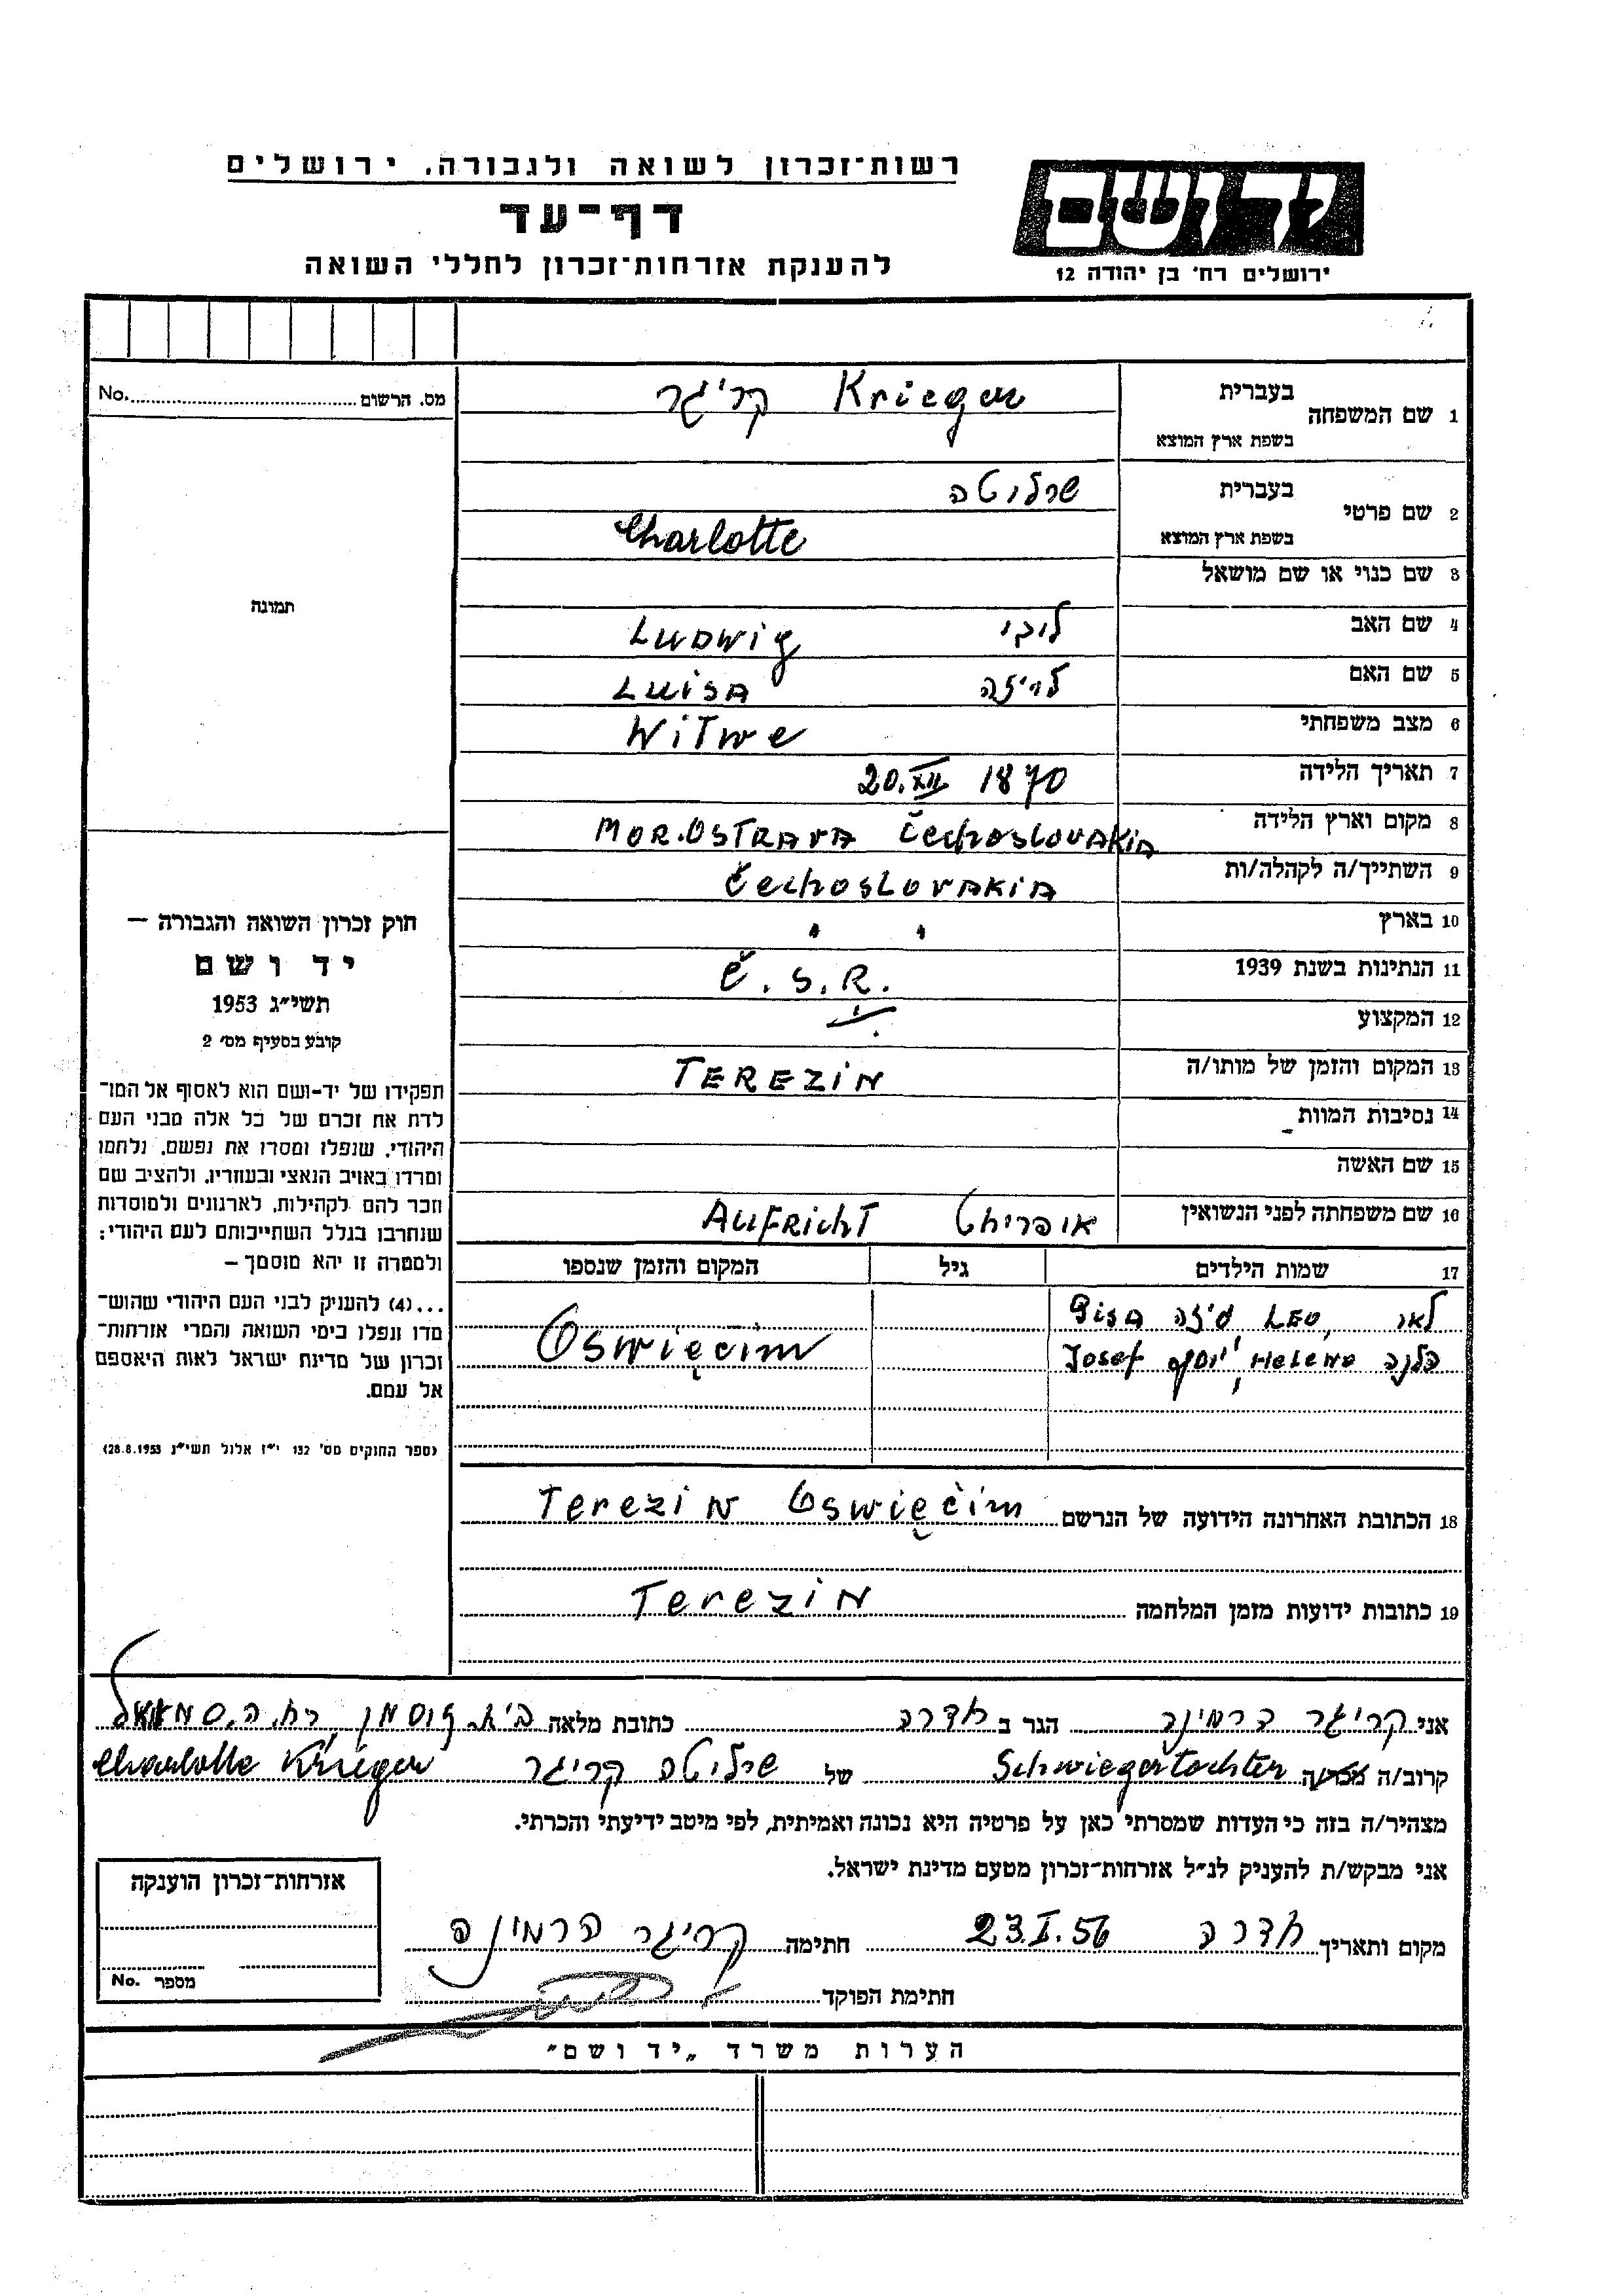 רשות־זכרון לשואה ולגבורה, ירושלים
דף־עד
להענקת אזרחות־זכרון לחללי השואה
יד ושם
ירושלים רח' בן יהודה 12
מס. הרשום No.
תמונה
חוק זכרון השואה והגבורה —
יד ושם
תשי״ג 1953
קובע בסעיף מס' 2
תפקידו של יד-ושם הוא לאסוף אל המו־
לדת את זכרם של כל אלה מבני העם
היהודי, שנפלו ומסרו את נפשם, נלחמו
ומרדו באויב הנאצי ובעוזריו, ולהציב שם
וזכר להם לקהילות, לארגונים ולמוסדות
שנחרבו בגלל השתייכותם לעם היהודי;
ולמטרה זו יהא מוסמך —
...(4) להעניק לבני העם היהודי שהוש־
מדו ונפלו בימי השואה והמרי אזרחות־
זכרון של מדינת ישראל לאות היאספם
אל עמם.
(ספר החוקים מס' 132 י״ז אלול תשי״ג 28.8.1953)
1 שם המשפחה בעברית קריגר Krieger
בשפת ארץ המוצא
2 שם פרטי בעברית שרלוטה
בשפת ארץ המוצא Charlotte
3 שם כנוי או שם מושאל
4 שם האב Ludwig
5 שם האם לויזה LUISA
6 מצב משפחתי Witwe
7 תאריך הלידה 20.XII 1870
8 מקום וארץ הלידה MOR.OSTRAVA Čechoslovakia
9 השתייך/ה לקהלה/ות Čechoslovakia
10 בארץ " "
11 הנתינות בשנת 1939 Č.S.R.
12 המקצוע
13 המקום והזמן של מותו/ה TEREZIN
14 נסיבות המוות
15 שם האשה
16 שם משפחתה לפני הנשואין אופריכט AUFRICHT
17 שמות הילדים גיל המקום והזמן שנספו
לאו LEO, גיזה GISA
הלנה Helene, יוסף Josef Oswięcim
18 הכתובת האחרונה הידועה של הנרשם Terezin Oswięcim
19 כתובות ידועות מזמן המלחמה Terezin
אני קריגר הרמינה הגר ב חדרה כתובת מלאה
קרוב/ה מכר/ה Schwiegertochter של שרלוטה קריגר Charlotte Krieger
מצהיר/ה בזה כי העדות שמסרתי כאן על פרטיה היא נכונה ואמיתית, לפי מיטב ידיעתי והכרתי.
אני מבקש/ת להעניק לנ״ל אזרחות־זכרון מטעם מדינת ישראל.
מקום ותאריך חדרה 23.I.56 חתימה קריגר הרמינה
חתימת הפוקד
אזרחות־זכרון הוענקה
מספר No.
הערות משרד „יד ושם"